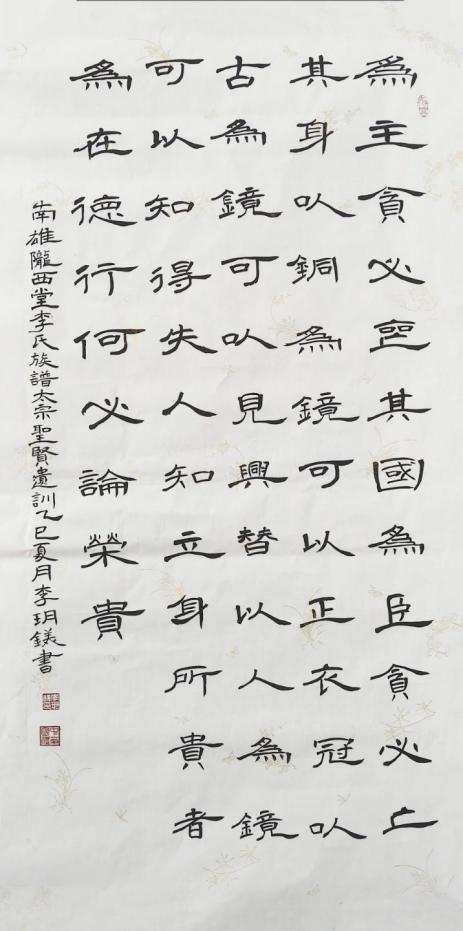 為主貪必喪其國為臣貪必亡
其身以銅為鏡可以正衣冠以
古為鏡可以見興替以人為鏡
可以知得失人知立身所貴者
為在德行何必論榮貴
南雄隴西堂李氏族譜太宗聖賢遺訓乙巳夏月李玥鎂書